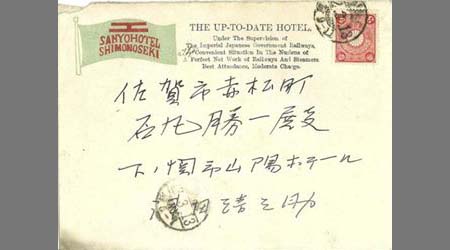 SANYOHOTEL
SHIMONOSEKI
THE UP-TO-DATE HOTEL.
Under The Supervision of
The Imperial Japanese Government Railways.
Convenient Situation In The Nucleus of
A Perfect Net Work of Railways and Steamers
Best Attendance, Moderate Charge.
佐賀市赤松町
石丸勝一殿
下ノ関市山陽ホテール